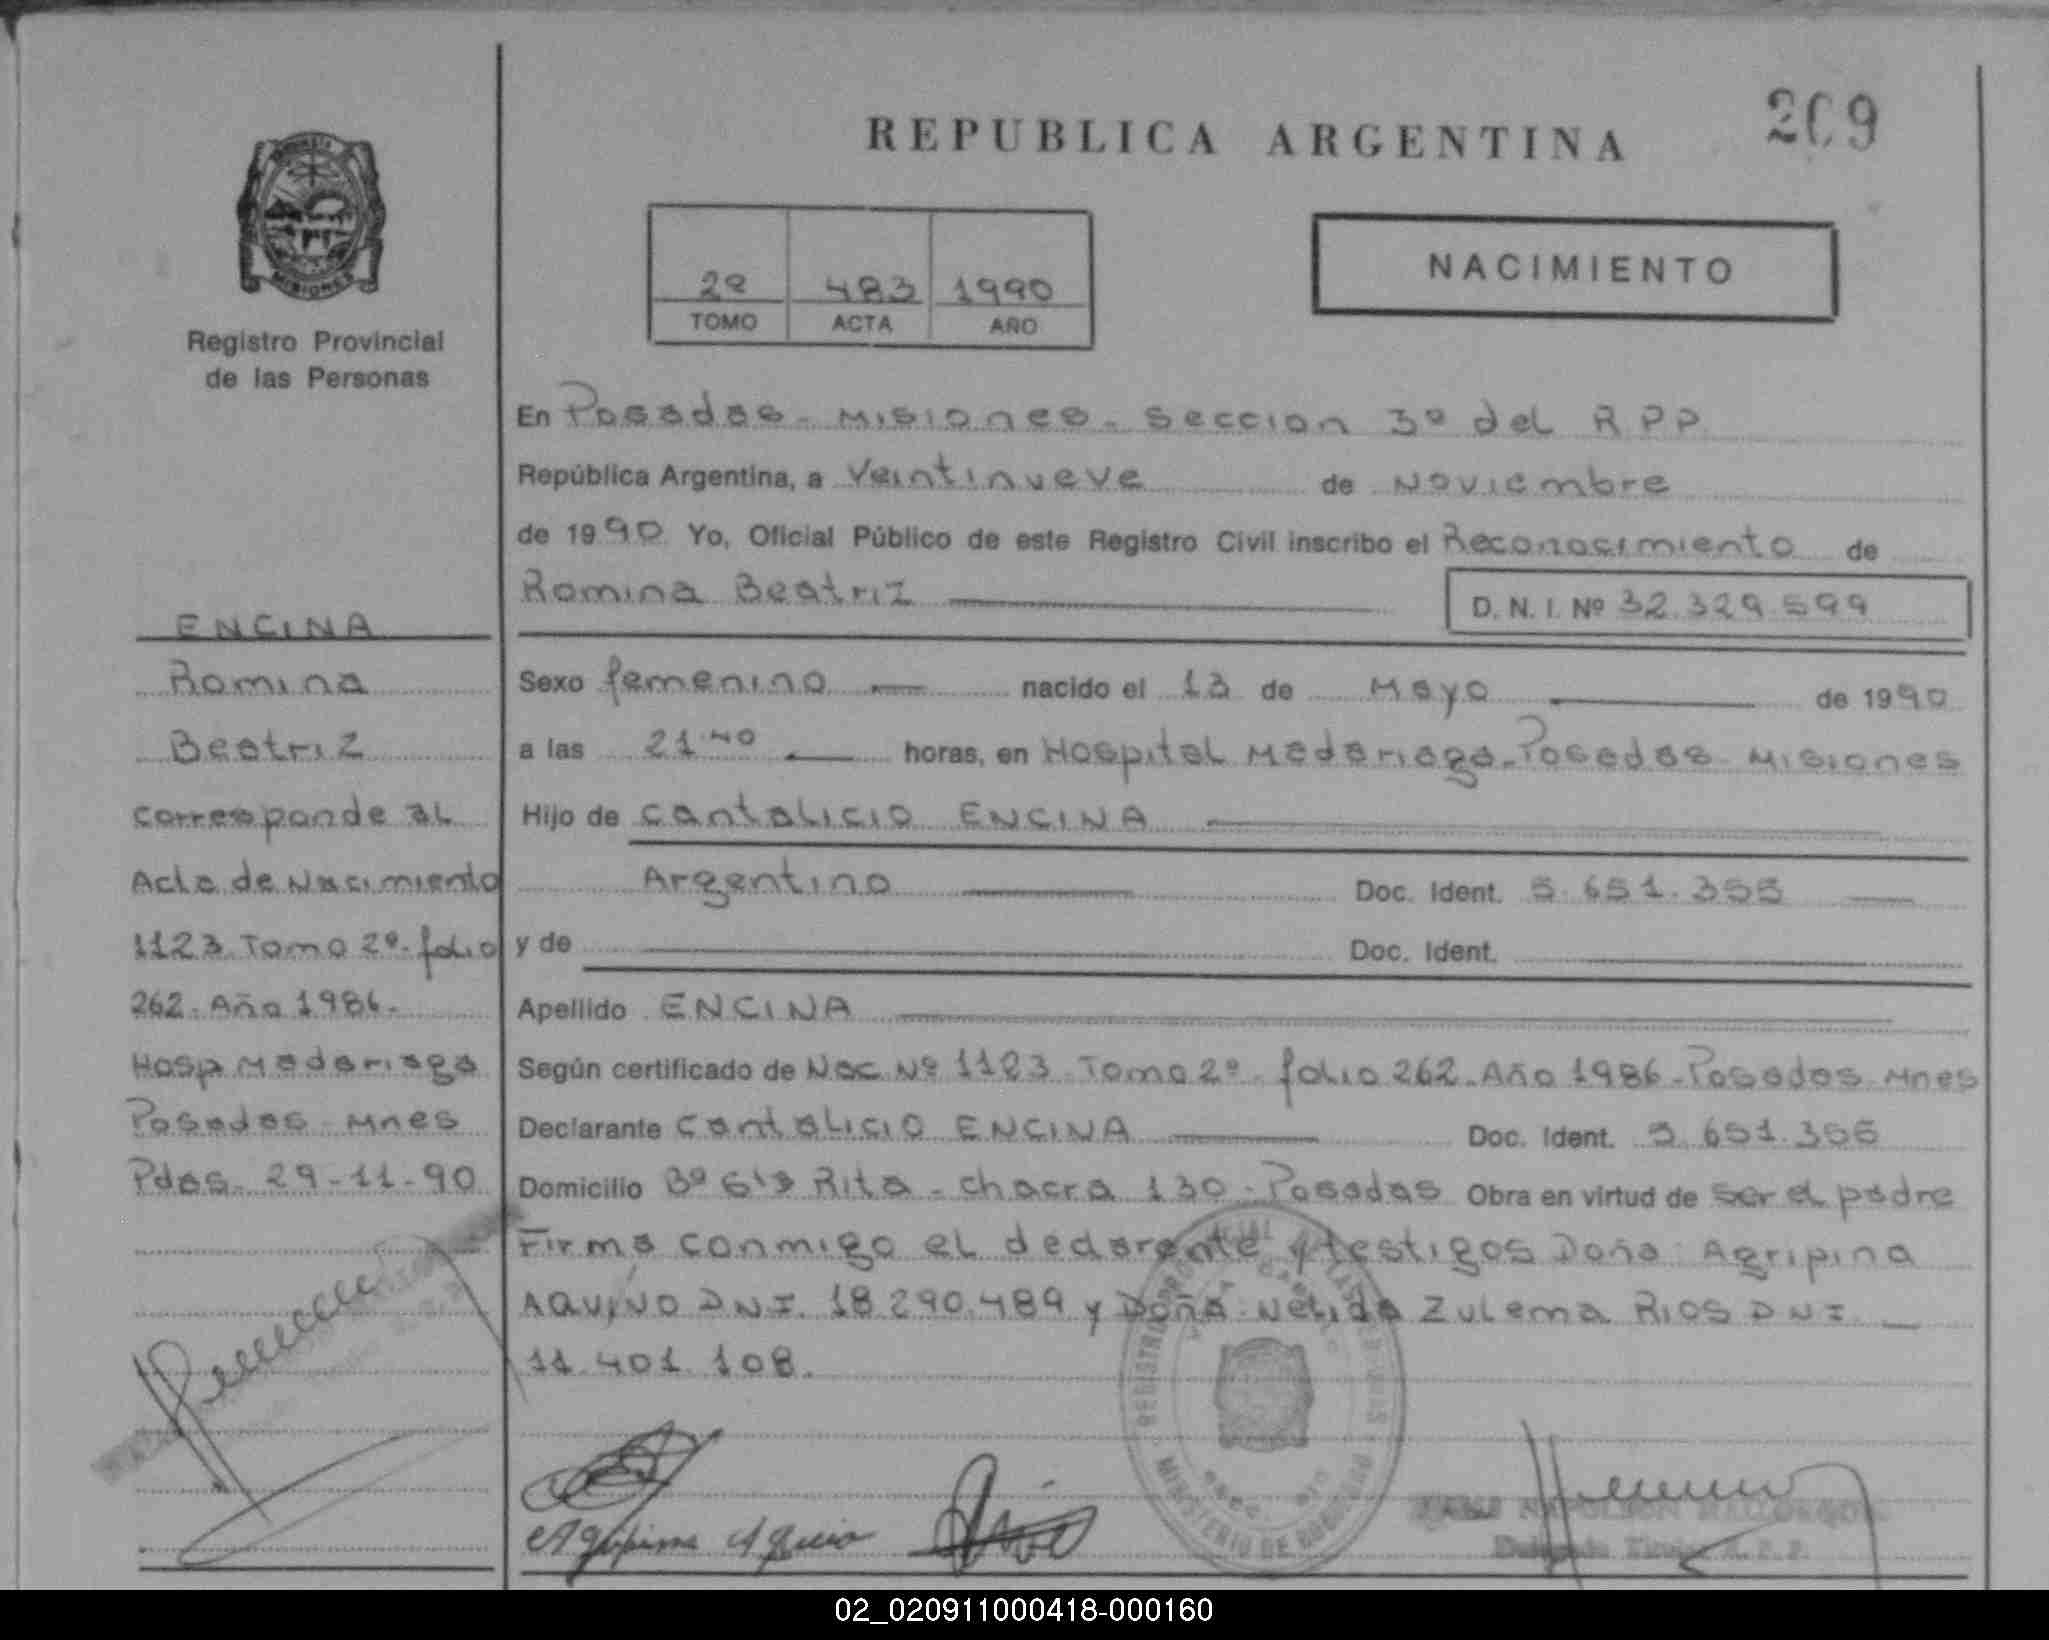 REPUBLICA ARGENTINA
209
MISIONES
Registro Provincial
de las Personas
2º 483 1990
TOMO ACTA AÑO
NACIMIENTO
En Posadas - Misiones - Seccion 3º del R P P
República Argentina, a Veintinueve de Noviembre
de 1990 Yo, Oficial Público de este Registro Civil inscribo el Reconocimiento de
Romina Beatriz D. N. I. Nº 32.329.599
Sexo femenino nacido el 13 de Mayo de 1990
a las 21:40 horas, en Hospital Madariaga - Posadas - Misiones
Hijo de Cantalicio ENCINA
Argentino Doc. Ident. 5.651.355
y de Doc. Ident.
Apellido ENCINA
Según certificado de Nac Nº 1123 Tomo 2º folio 262 - Año 1986 - Posadas - Mnes
Declarante Cantalicio ENCINA Doc. Ident. 5.651.355
Domicilio Bº Rita - Chacra 130 - Posadas Obra en virtud de ser el padre
Firma conmigo el declarante y testigos Doña: Agripina
AQUINO D N I. 18.290.489 y Doña: Nelida Zulema RIOS D N I.
11.401.108.
ENCINA
Romina
Beatriz
Corresponde al
Acta de Nacimiento
1123 Tomo 2º - folio
262 - Año 1986 -
Hosp Madariaga
Posadas - Mnes
Pdas - 29-11-90
REGISTRO PROVINCIAL DE LAS PERSONAS
MINISTERIO DE GOBIERNO
Agripina Aquino
NAPOLEON
Delegado Titular R. P. P.
02_020911000418-000160